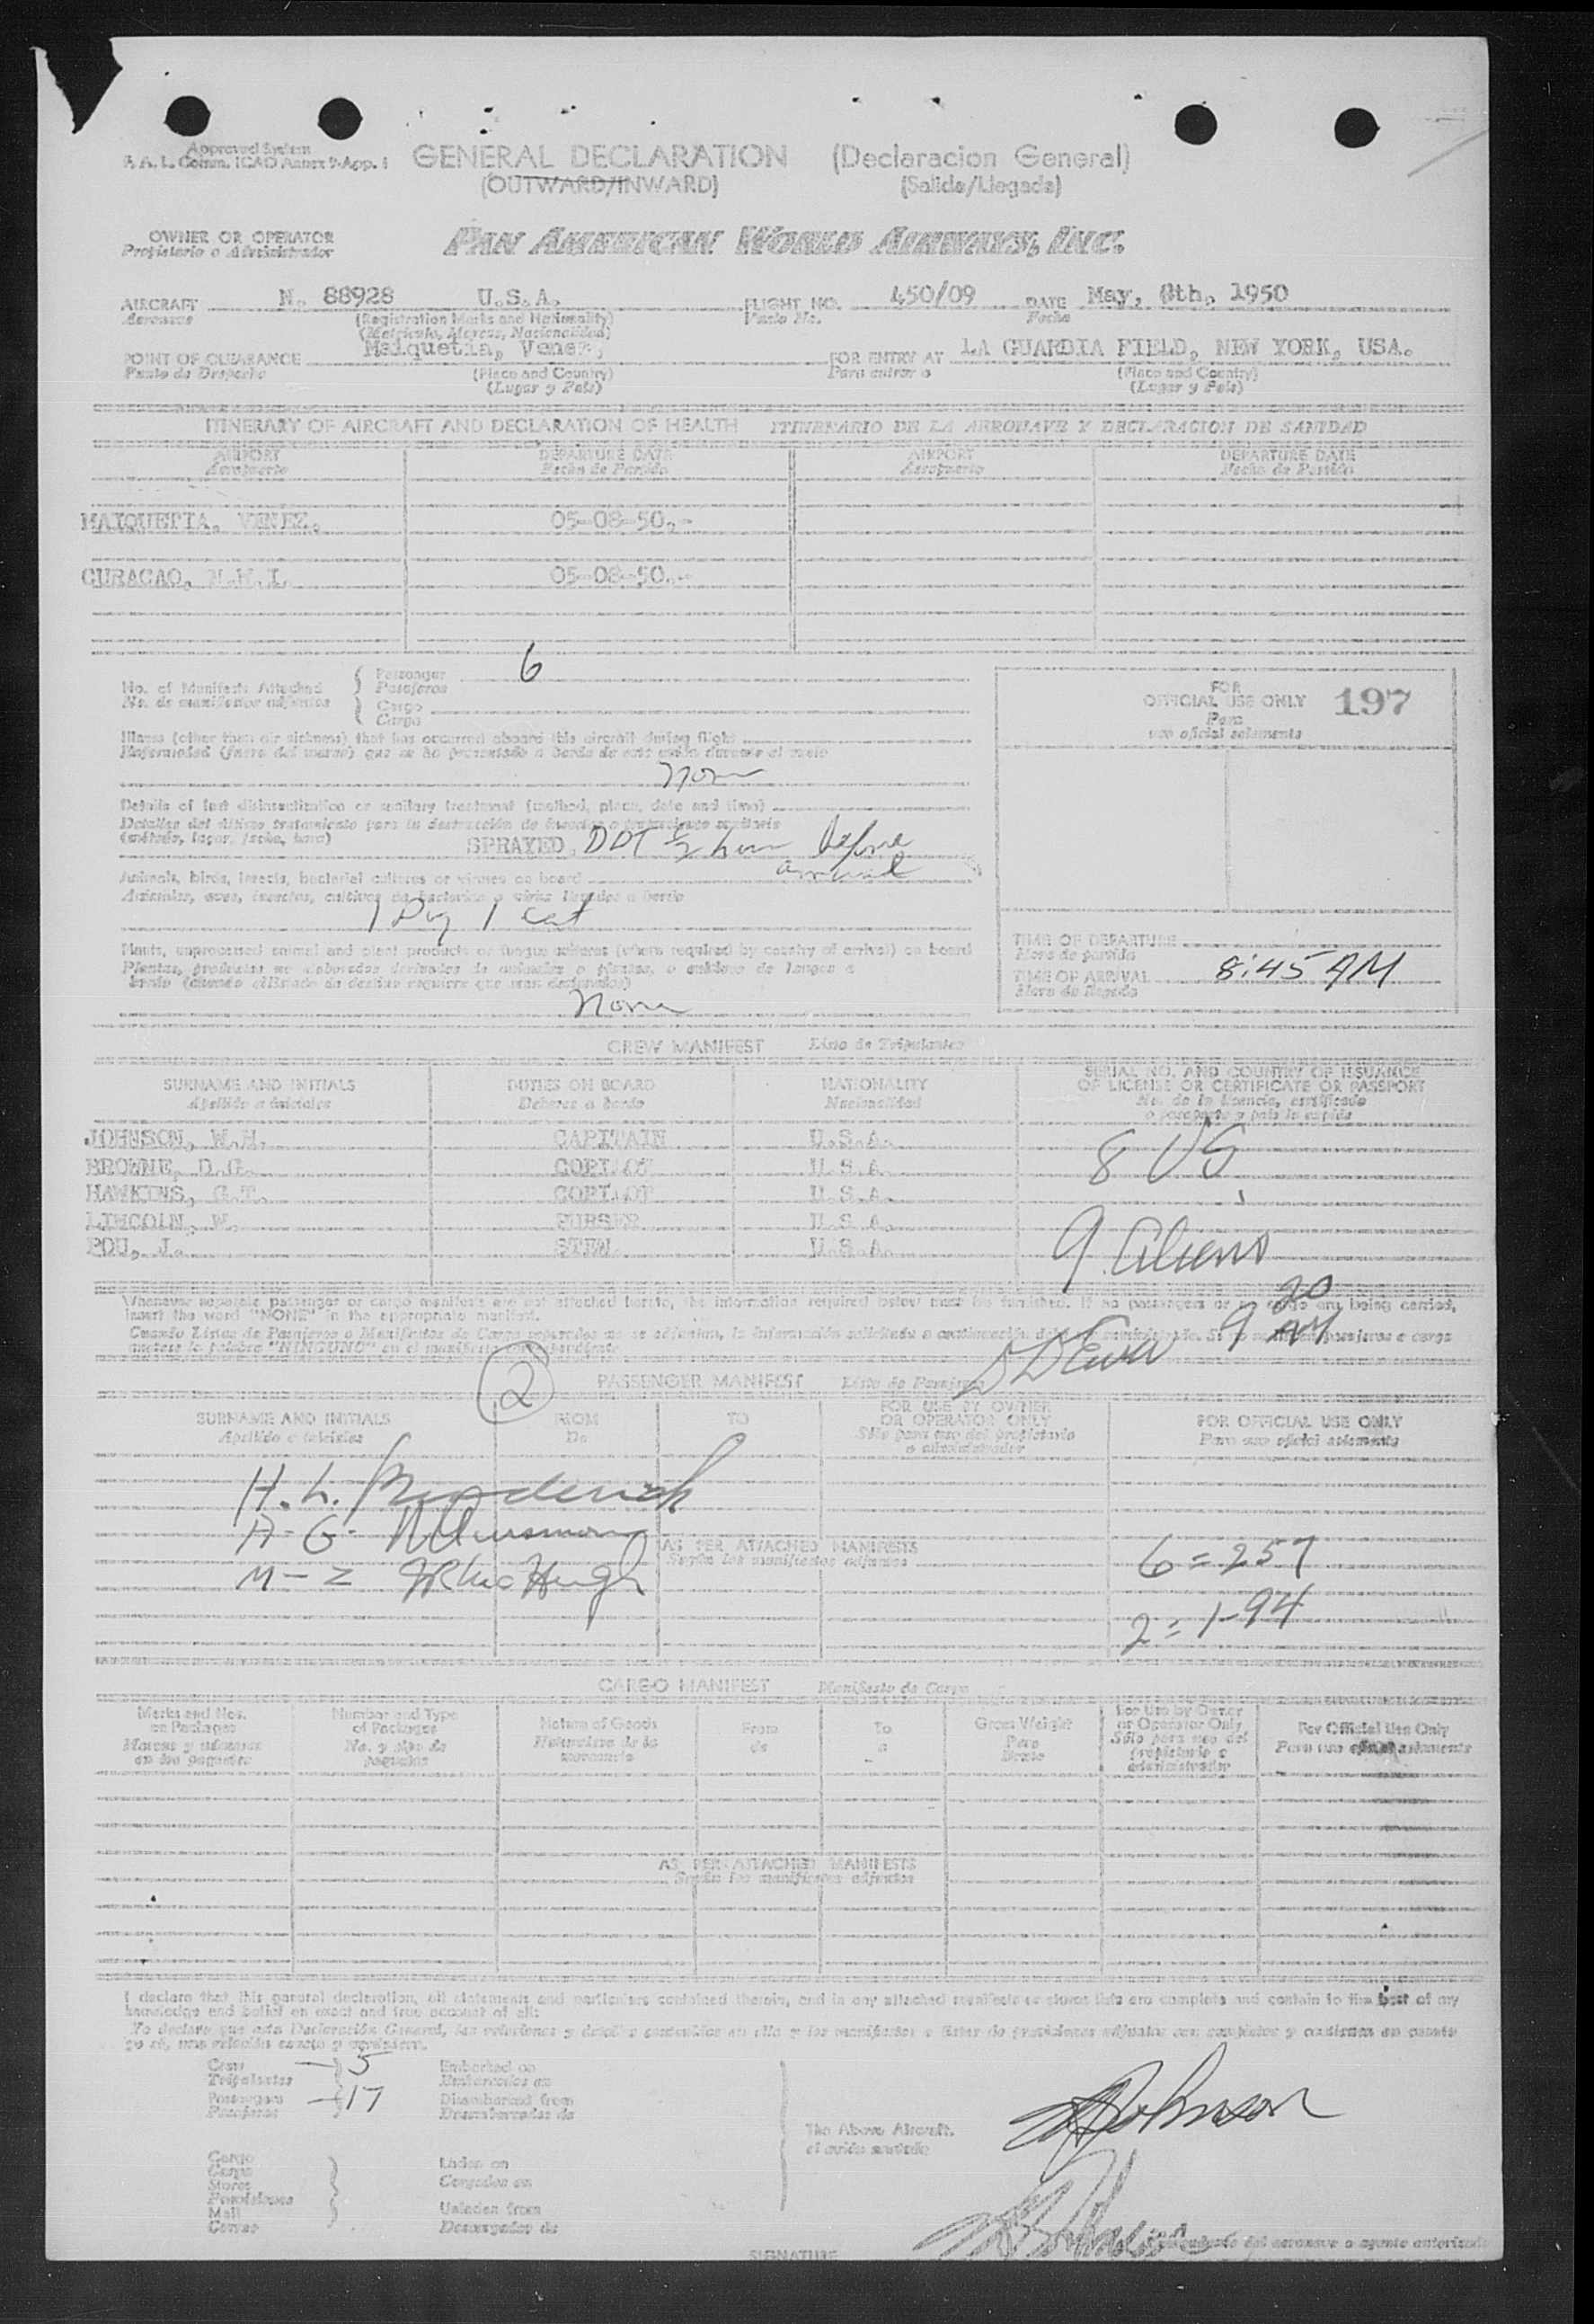 Approved System
F. A. L. Comm. ICAO Annex 9-App. 1
GENERAL DECLARATION (Declaracion General)
(OUTWARD/INWARD) (Salida/Llegada)
OWNER OR OPERATOR
Propietario o Administrador
PAN AMERICAN WORLD AIRWAYS, INC.
AIRCRAFT N. 88928 U.S.A. FLIGHT NO. 450/09 DATE May, 8th, 1950
Aeronave (Registration Marks and Nationality) Vuelo No. Fecha
(Matricula, Marcas, Nacionalidad)
POINT OF CLEARANCE Maiquetia, Venez, FOR ENTRY AT LA GUARDIA FIELD, NEW YORK, USA.
Punto de Despacho (Place and Country) Para entrar a (Place and Country)
(Lugar y Pais) (Lugar y Pais)
ITINERARY OF AIRCRAFT AND DECLARATION OF HEALTH ITINERARIO DE LA AERONAVE Y DECLARACION DE SANIDAD
AIRPORT DEPARTURE DATE AIRPORT DEPARTURE DATE
Aeropuerto Fecha de Partida Aeropuerto Fecha de Partida
MAIQUETIA, VENEZ. 05-08-50.-
CURACAO, N.W.I. 05-08-50.-
No. of Manifests Attached Passenger 6
No. de manifiestos adjuntos Pasajeros
Cargo
Carga
FOR
OFFICIAL USE ONLY 197
Para
uso oficial solamente
Illness (other than air sickness) that has occurred aboard this aircraft during flight
Enfermedad (fuera del mareo) que se ha presentado a bordo de este avión durante el vuelo
none
Details of last disinsectization or sanitary treatment (method, place, date and time)
Detalles del último tratamiento para la destrucción de insectos o tratamiento sanitario
(método, lugar, fecha, hora) SPRAYED DDT ½ hour before
arrival
Animals, birds, insects, bacterial cultures or viruses on board
Animales, aves, insectos, cultivos de bacterias o virus llegados a bordo
1 Dog 1 cat
Plants, unprocessed animal and plant products or fungus cultures (where required by country of arrival) on board
Plantas, productos no elaborados derivados de animales o plantas, o cultivos de hongos a
bordo (cuando el Estado de destino requiere que sean declarados)
none
TIME OF DEPARTURE
Hora de partida
TIME OF ARRIVAL 8:45 AM
Hora de llegada
CREW MANIFEST Lista de Tripulantes
SURNAME AND INITIALS DUTIES ON BOARD NATIONALITY SERIAL NO. AND COUNTRY OF ISSUANCE
OF LICENSE OR CERTIFICATE OR PASSPORT
Apellido e iniciales Deberes a bordo Nacionalidad No. de la licencia, certificado
o pasaporte y pais lo expide
JOHNSON, W.H. CAPITAIN U.S.A.
BROWNE, D.G. COPILOT U.S.A.
HAWKINS, G.T. COPILOT U.S.A.
LINCOLN, W. PURSER U.S.A.
POU, J. STEW. U.S.A.
8 US
9 Aliens
9 20 AM
Whenever separate passenger or cargo manifests are not attached hereto, the information required below must be furnished. If no passengers or no cargo are being carried,
insert the word "NONE" in the appropriate manifest.
2
PASSENGER MANIFEST Lista de Pasajeros
SURNAME AND INITIALS FROM TO FOR USE BY OWNER
OR OPERATOR ONLY FOR OFFICIAL USE ONLY
Apellido e iniciales De Sólo para uso del propietario
o administrador Para uso oficial solamente
H. L.
A-G
M-Z
AS PER ATTACHED MANIFESTS
Según los manifiestos adjuntos
6 = 257
2 = 1-94
CARGO MANIFEST Manifiesto de Carga
Marks and Nos.
on Packages
Marcas y números
en los paquetes
Number and Type
of Packages
No. y tipo de
paquetes
Nature of Goods
Naturaleza de la
mercancía
From
de
To
a
Gross Weight
Peso
Bruto
For Use by Owner
or Operator Only
Sólo para uso del
propietario o
administrador
For Official Use Only
Para uso oficial solamente
AS PER ATTACHED MANIFESTS
Según los manifiestos adjuntos
I declare that this general declaration, all statements and particulars contained therein, and in any attached manifests or stores lists are complete and contain to the best of my
knowledge and belief an exact and true account of all:
Crew 5 Embarked on
Tripulantes Embarcados en
Passengers 17 Disembarked from
Pasajeros Desembarcados de
The Above Aircraft.
el avión anotado
Johnson
Cargo Laden on
Carga Cargados en
Stores
Provisiones
Mail Unladen from
Correo Descargados de
SIGNATURE